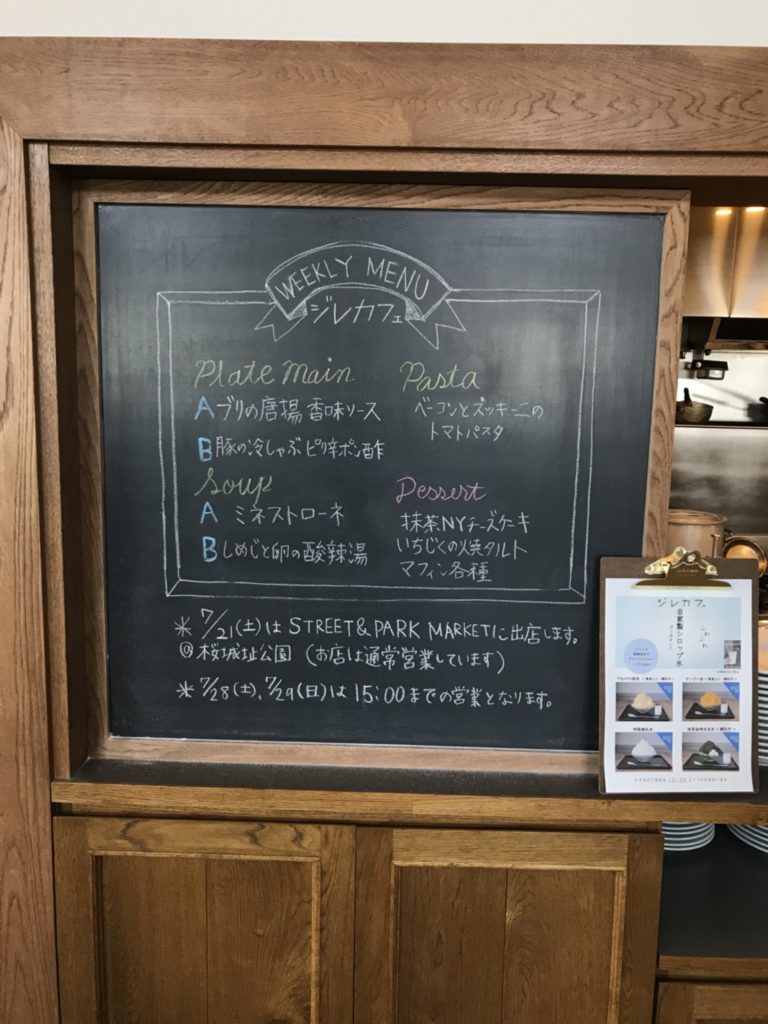 WEEKLY MENU
ジレカフェ
Plate Main
A ブリの唐揚 香味ソース
B 豚の冷しゃぶ ピリ辛ポン酢
Soup
A ミネストローネ
B しめじと卵の酸辣湯
Pasta
ベーコンとズッキーニの
トマトパスタ
Dessert
抹茶NYチーズケーキ
いちじくの焼タルト
マフィン各種
* 7/21(土)は STREET&PARK MARKETに出店します。
@桜城址公園 (お店は通常営業しています)
* 7/28(土)、7/29(日)は 15:00までの営業となります。
ジレカフェ
自家製シロップ氷
ふわふわ